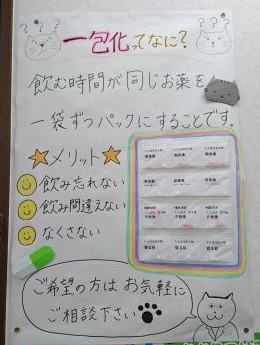 ? ? ? ?
一包化ってなに?
飲む時間が同じお薬を
一袋ずつパックにすることです。
☆メリット☆
飲み忘れない
飲み間違えない
なくさない
ご希望の方はお気軽に
ご相談下さい